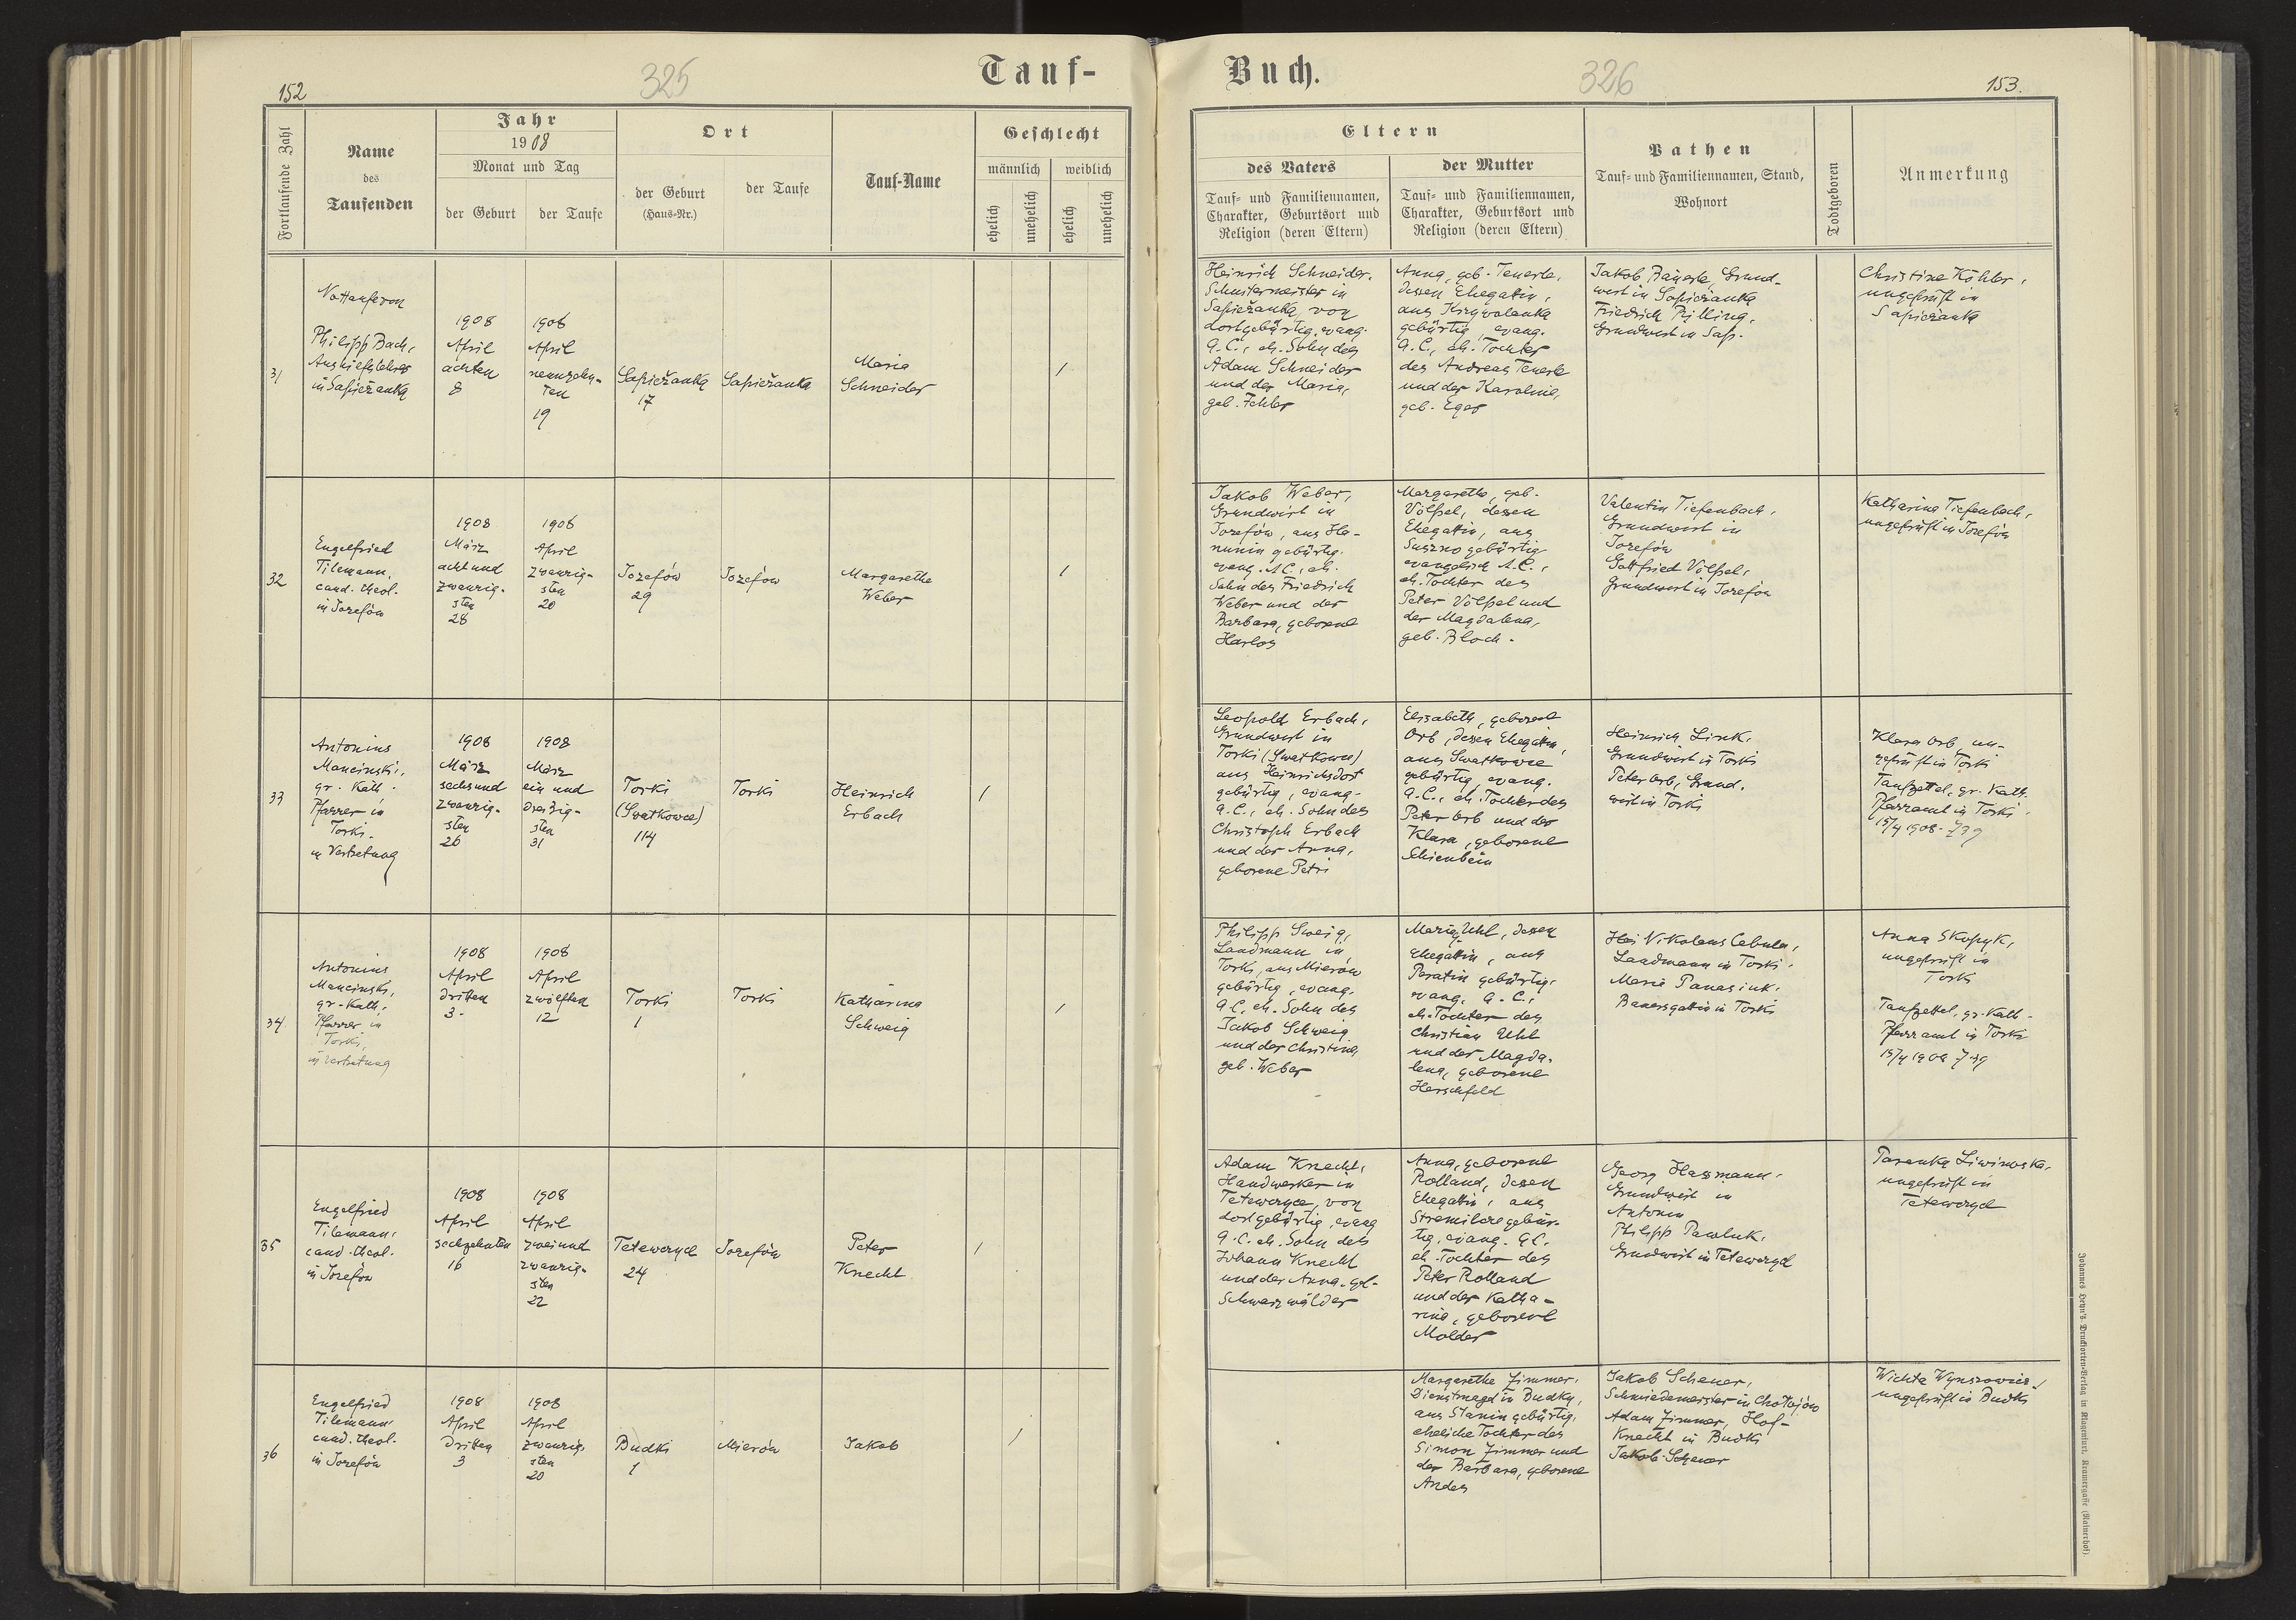 152
325
Tauf-
Fortlaufende Zahl
Name
des
Taufenden
Jahr
1908
Monat und Tag
der Geburt
der Taufe
Ort
der Geburt
(Haus-Nr.)
der Taufe
Tauf-Name
Geschlecht
männlich
weiblich
ehelich
unehelich
ehelich
unehelich
31
Nottaufe von
Philipp Bach,
Aushilfslehrer
in Sapieżanka
1908
April
achten
8
1908
April
neunzehn-
ten
19
Sapieżanka
17
Sapieżanka
Maria
Schneider
1
32
Engelfried
Tilemann,
cand. theol.
in Jozefów
1908
März
acht und
zwanzig-
sten
28
1908
April
zwanzig-
sten
20
Jozefów
29
Jozefow
Margarethe
Weber
1
33
Antonius
Mancinski,
gr. Kath.
Pfarrer in
Torki.
in Vertretung
1908
März
sechsund
zwanzig-
sten
26
1908
März
ein und
dreißig-
sten
31
Torki
(Swatkowce)
114
Torki
Heinrich
Erbach
1
34
Antonius
Mancinski,
gr. Kath.
Pfarrer in
Torki,
in Vertretung
1908
April
dritten
3.
1908
April
zwölften
12
Torki
1
Torki
Katharina
Schweig
1
35
Engelfried
Tilemann,
cand. theol.
in Jozefów
1908
April
sechzehnten
16
1908
April
zweiund
zwanzig-
sten
22
Tetewczyce
24
Jozefów
Peter
Knecht
1
36
Engelfried
Tilemann,
cand. theol.
in Jozefów
1908
April
dritten
3
1908
April
zwanzig-
sten
20
Budki
1
Mierów
Jakob
1
Buch.
326
153.
Eltern
des Vaters
Tauf- und Familiennamen,
Charakter, Geburtsort und
Religion (deren Eltern)
der Mutter
Tauf- und Familiennamen,
Charakter, Geburtsort und
Religion (deren Eltern)
Pathen
Tauf- und Familiennamen, Stand,
Wohnort
Todtgeboren
Anmerkung
Heinrich Schneider,
Schustermeister in
Sapieżanka, von
dort gebürtig, evang.
A.C., eh. Sohn des
Adam Schneider
und der Maria,
geb.
Anna, geb. Teuerle,
dessen Ehegattin,
aus
gebürtig, evang.
A.C., eh. Tochter
des Andreas Teuerle
und der Karolina,
geb. Eger
Jakob Bäuerle, Grund-
wirt in Sapieżanka
Friedrich Rilling,
Grundwirt in Sap.
Christine Köhler,
ungeprüft in
Sapieżanka
Jakob Weber,
Grundwirt in
Jozefów, aus Ha-
nunin gebürtig,
evang. A.C., eh.
Sohn des Friedrich
Weber und der
Barbara, geborene
Harlos
Margarethe, geb.
Völpel, dessen
Ehegattin, aus
Suszno gebürtig
evangelisch A.C.,
eh. Tochter des
Peter Völpel und
der Magdalena,
geb. Bloch.
Valentin Tiefenbach,
Grundwirt in
Jozefów
Gottfried Völpel,
Grundwirt in Jozefów
Katharina Tiefenbach,
ungeprüft in Jozefów
Leopold Erbach,
Grundwirt in
Torki (Swatkowce)
aus Heinrichsdorf
gebürtig, evang.
A.C., eh. Sohn des
Christoph Erbach
und der Anna,
geborene Petri
Elisabeth, geborene
Orb, dessen Ehegattin,
aus Swatkowce
gebürtig, evang.
A.C., eh. Tochter des
Peter Orb und der
Klara, geborene
Schienbein
Heinrich Link,
Grundwirt in Torki
Peter Orb, Grund-
wirt in Torki
Klara Orb, un-
geprüft in Torki
Taufzettel, gr. Kath.
Pfarramt in Torki.
15/4 1908.
Philipp Sweig,
Landmann in
Torki, aus Mierów
gebürtig, evang.
A.C., eh. Sohn des
Jakob Schweig
und der Christina,
geb. Weber
Maria Uhl, dessen
Ehegattin, aus
Peratin gebürtig,
evang. A.C.,
eh. Tochter des
Christian Uhl
und der Magda-
lena, geborene
Herschfeld
Nikolaus Cebula,
Landmann in Torki.
Maria Panasiuk,
Bauersgattin in Torki
Anna Skopyk,
ungeprüft in
Torki
Taufzettel, gr. Kath.
Pfarramt in Torki
15/4 1908
Adam Knecht,
Handwerker in
Tetewczyce, von
dort gebürtig, evang
A.C. eh. Sohn des
Johann Knecht
und der Anna, geb.
Schwarzwälder
Anna, geborene
Rolland, dessen
Ehegattin, aus
Stremilcze gebür-
tig, evang. A.C.
eh. Tochter des
Peter Rolland
und der Katha-
rina, geborene
Molder
Georg Hassmann,
Grundwirt in
Antonin
Philipp Pawluk,
Grundwirt in Tetewczyce
Paranka Liwinoska,
ungeprüft in
Tetewczyce
Margarethe Zimmer,
Dienstmagd in Budky,
aus Stanin gebürtig,
eheliche Tochter des
Simon Zimmer und
der Barbara, geborene
Andes
Jakob Scheuer,
Schmiedemeister in Chołojów
Adam Zimmer, Hof-
Knecht in Budki
Jakob Scheuer
Wichta
ungeprüft in Budki
Johannes Heyn's Drucksorten-Verlag in Klagenfurt, Kramergasse (Rainerhof)